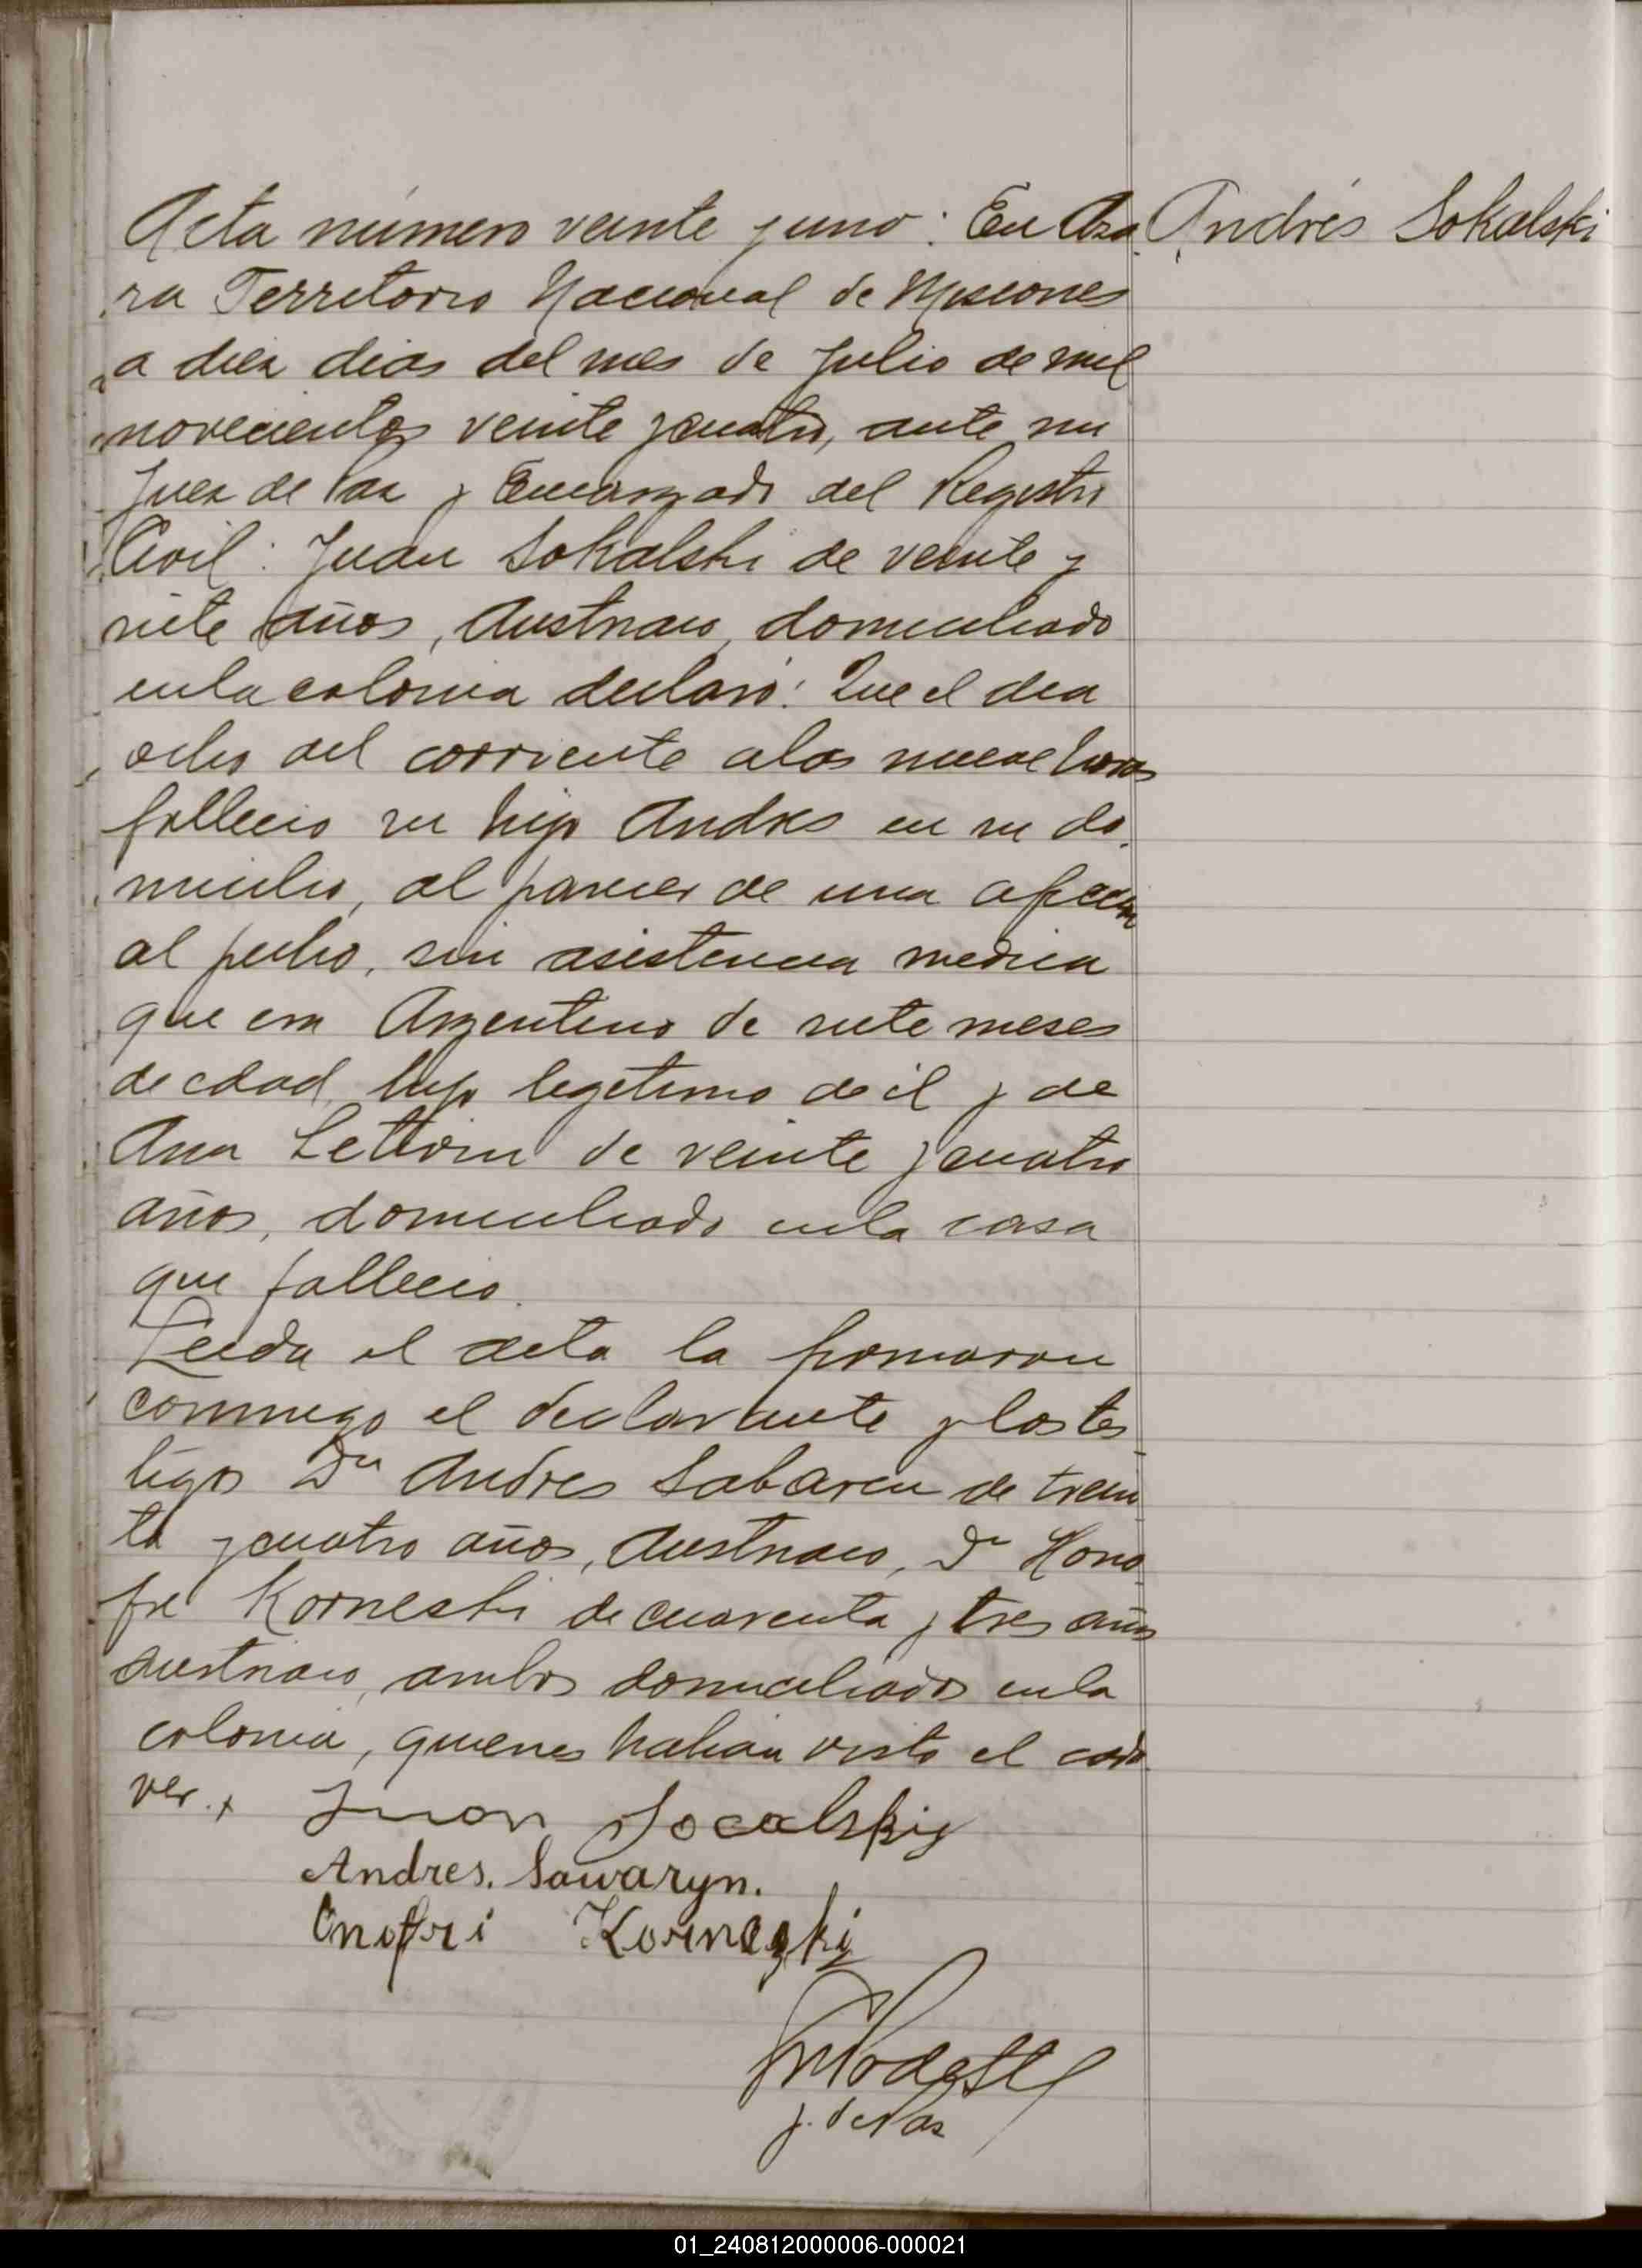 Acta número veinte y uno: En Aza
Andrés Sokalski
ra Territorio Nacional de Misiones
a diez dias del mes de Julio de mil
novecientos veinte y cuatro, ante mi
Juez de Paz y Encargado del Registro
Civil: Juan Sokalski de veinte y
siete años, Austriaco, domiciliado
en la colonia declaró: Que el dia
ocho del corriente a las nueve horas
fallecio su hijo Andres en su do
micilio, al parecer de una afeccion
al pecho, sin asistencia medica
que era Argentino de siete meses
de edad, hijo legitimo de él y de
Ana de veinte y cuatro
años, domiciliado en la casa
que fallecio.
Leida el acta la firmaron
conmigo el declarante y los tes
tigos Dn Andres Sabaren de trein
ta y cuatro años, Austriaco, Dn Hono
fre Korneski de cuarenta y tres años
Austriaco, ambos domiciliados en la
colonia, quienes habian visto el cada
ver. x Juan Socalskiy
Andres. Sawaryn.
Onofri Korneski
J. de Paz
01_240812000006-000021